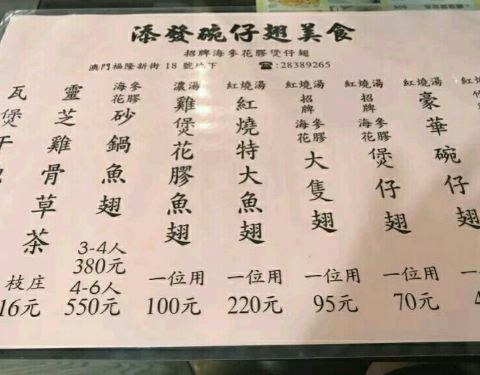 添發碗仔翅美食
招牌海參花膠煲仔翅
澳門福隆新街18號地下 ☎:28389265
紅燒湯
豪華碗仔翅
紅燒湯
招牌
海參花膠
煲仔翅
70元
紅燒湯
招牌
海參花膠
大隻翅
一位用
95元
紅燒湯
紅燒特大魚翅
一位用
220元
濃湯
雞煲花膠魚翅
一位用
100元
海參花膠
砂鍋魚翅
3-4人
380元
4-6人
550元
靈芝雞骨草茶
枝庄
16元
瓦煲